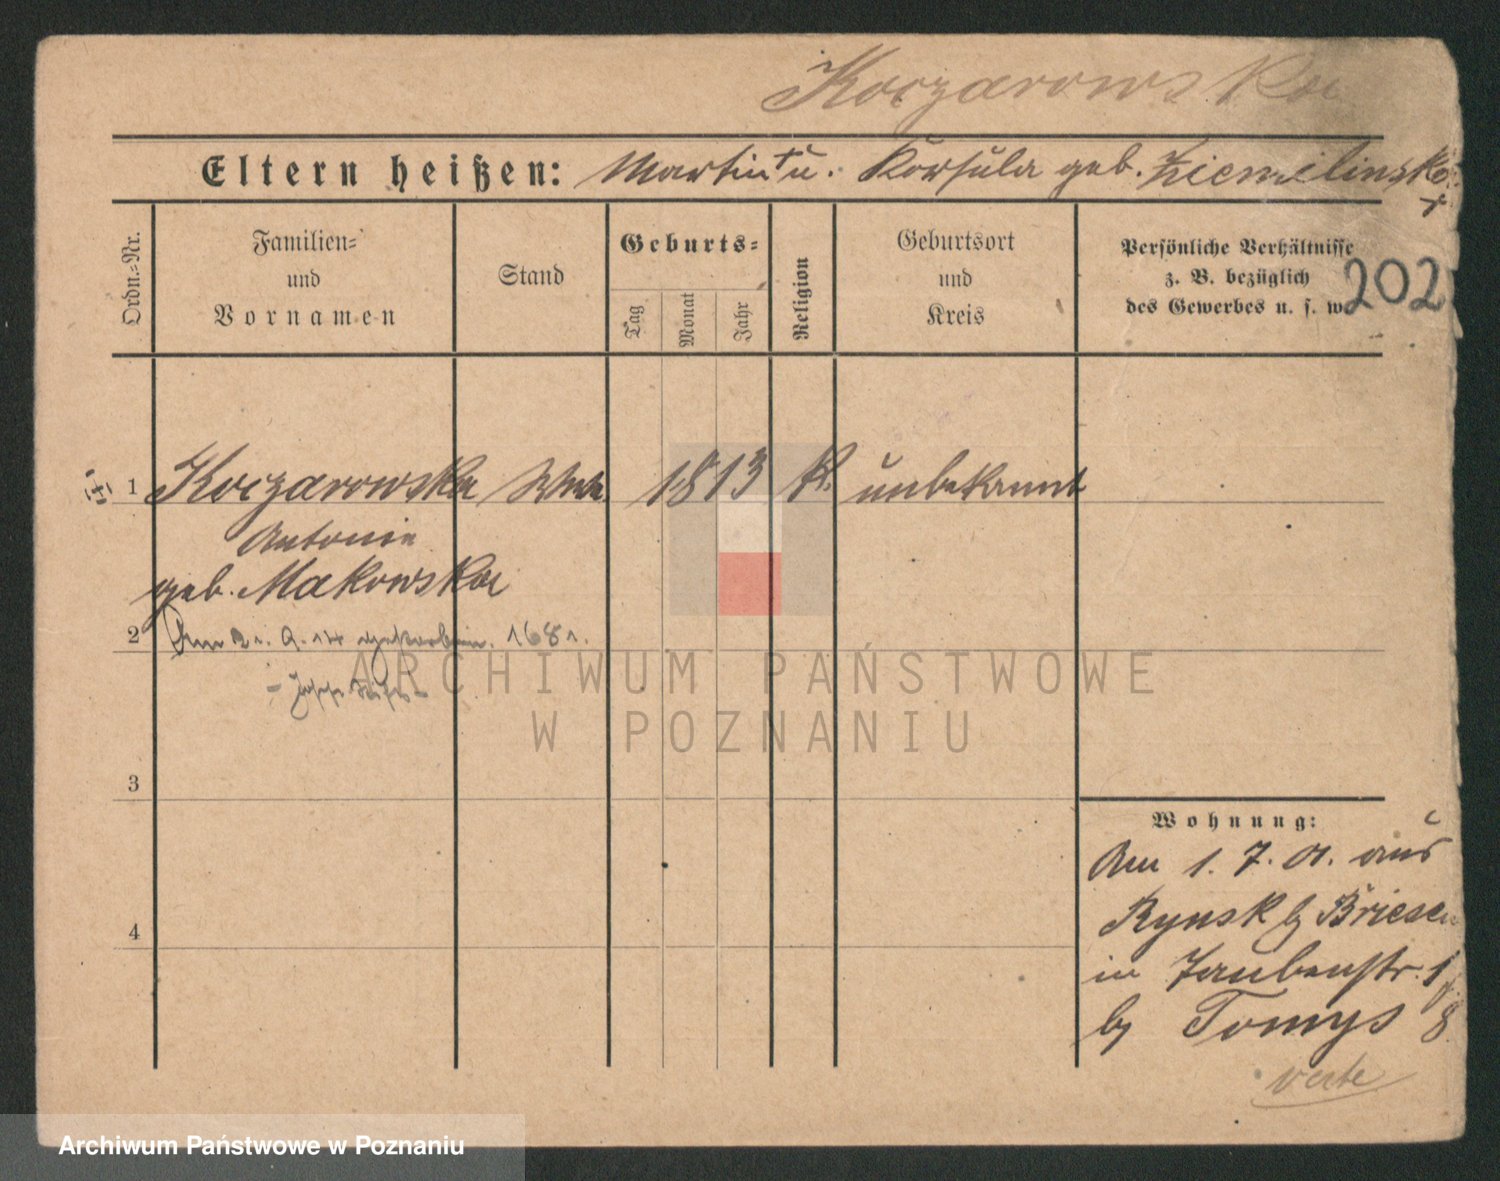 Koczarowska
Eltern heißen: Martin + u. Korsula geb. Ziemilinska
+
Ordn.=Nr.
Familien=
und
Vornamen
Stand
Geburts=
Tag
Monat
Jahr
Religion
Geburtsort
und
Kreis
Persönliche Verhältnisse
z. B. bezüglich
des Gewerbes u. s. w.
202
1 Koczarowska Wwe. 1813 k. unbekannt
Antonie
geb. Makowska
2
Am 21. 9. 14 gestorben. 1681.
3
4
Wohnung:
Am 1. 7. 01. aus
Rynsk b/ Briesen
in Taubenstr. 1
by Tomys 8
verte
ARCHIWUM PAŃSTWOWE
W POZNANIU
Archiwum Państwowe w Poznaniu